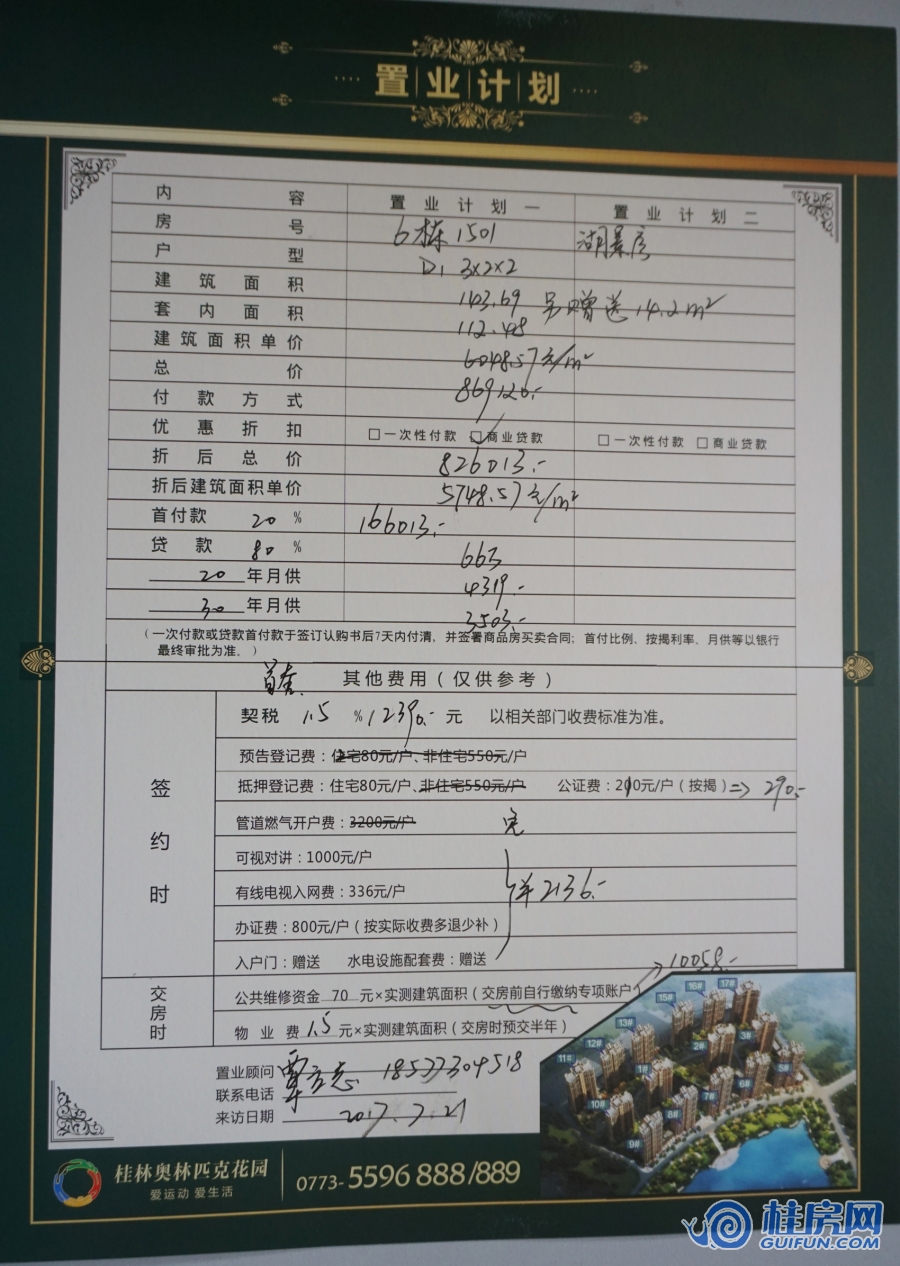 置业计划
内容 置业计划一 置业计划二
房号 6栋1501 湖景房
户型 D1 3×2×2
建筑面积 143.69 另赠送14.2m²
套内面积 112.48
建筑面积单价 6048.57元/m²
总价 869120.-
付款方式 □一次性付款 ☑商业贷款 □一次性付款 □商业贷款
优惠折扣
折后总价 826013.-
折后建筑面积单价 5748.57元/m²
首付款 20 % 166013.-
贷款 80 % 66万
20 年月供 4319.-
30 年月供 3503.-
(一次付款或贷款首付款于签订认购书后7天内付清,并签署商品房买卖合同;首付比例、按揭利率、月供等以银行
最终审批为准。)
首套 其他费用(仅供参考)
签约时
契税 1.5 % 12390.- 元 以相关部门收费标准为准。
预告登记费:住宅80元/户、非住宅550元/户
抵押登记费:住宅80元/户、非住宅550元/户 公证费:210元/户(按揭)=> 290.-
管道燃气开户费:3200元/户
可视对讲:1000元/户
有线电视入网费:336元/户 2136.-
办证费:800元/户(按实际收费多退少补)
入户门:赠送 水电设施配套费:赠送
交房时
公共维修资金 70 元×实测建筑面积(交房前自行缴纳专项账户) 10058.-
物业费 1.5 元×实测建筑面积(交房时预交半年)
置业顾问 覃方志 18577304518
联系电话
来访日期 2017.7.21
11# 12# 13# 15# 16# 17#
1# 2# 3# 5# 6# 7# 8# 9# 10#
桂林奥林匹克花园
爱运动 爱生活
0773-5596 888/889
桂房网
GUIFUN.COM